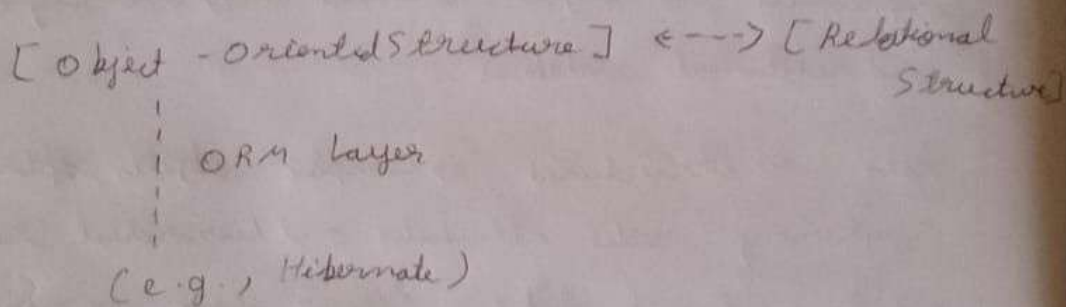 [Object - Oriented Structure] <---> [Relational
Structure]
ORM Layer
(e.g., Hibernate)